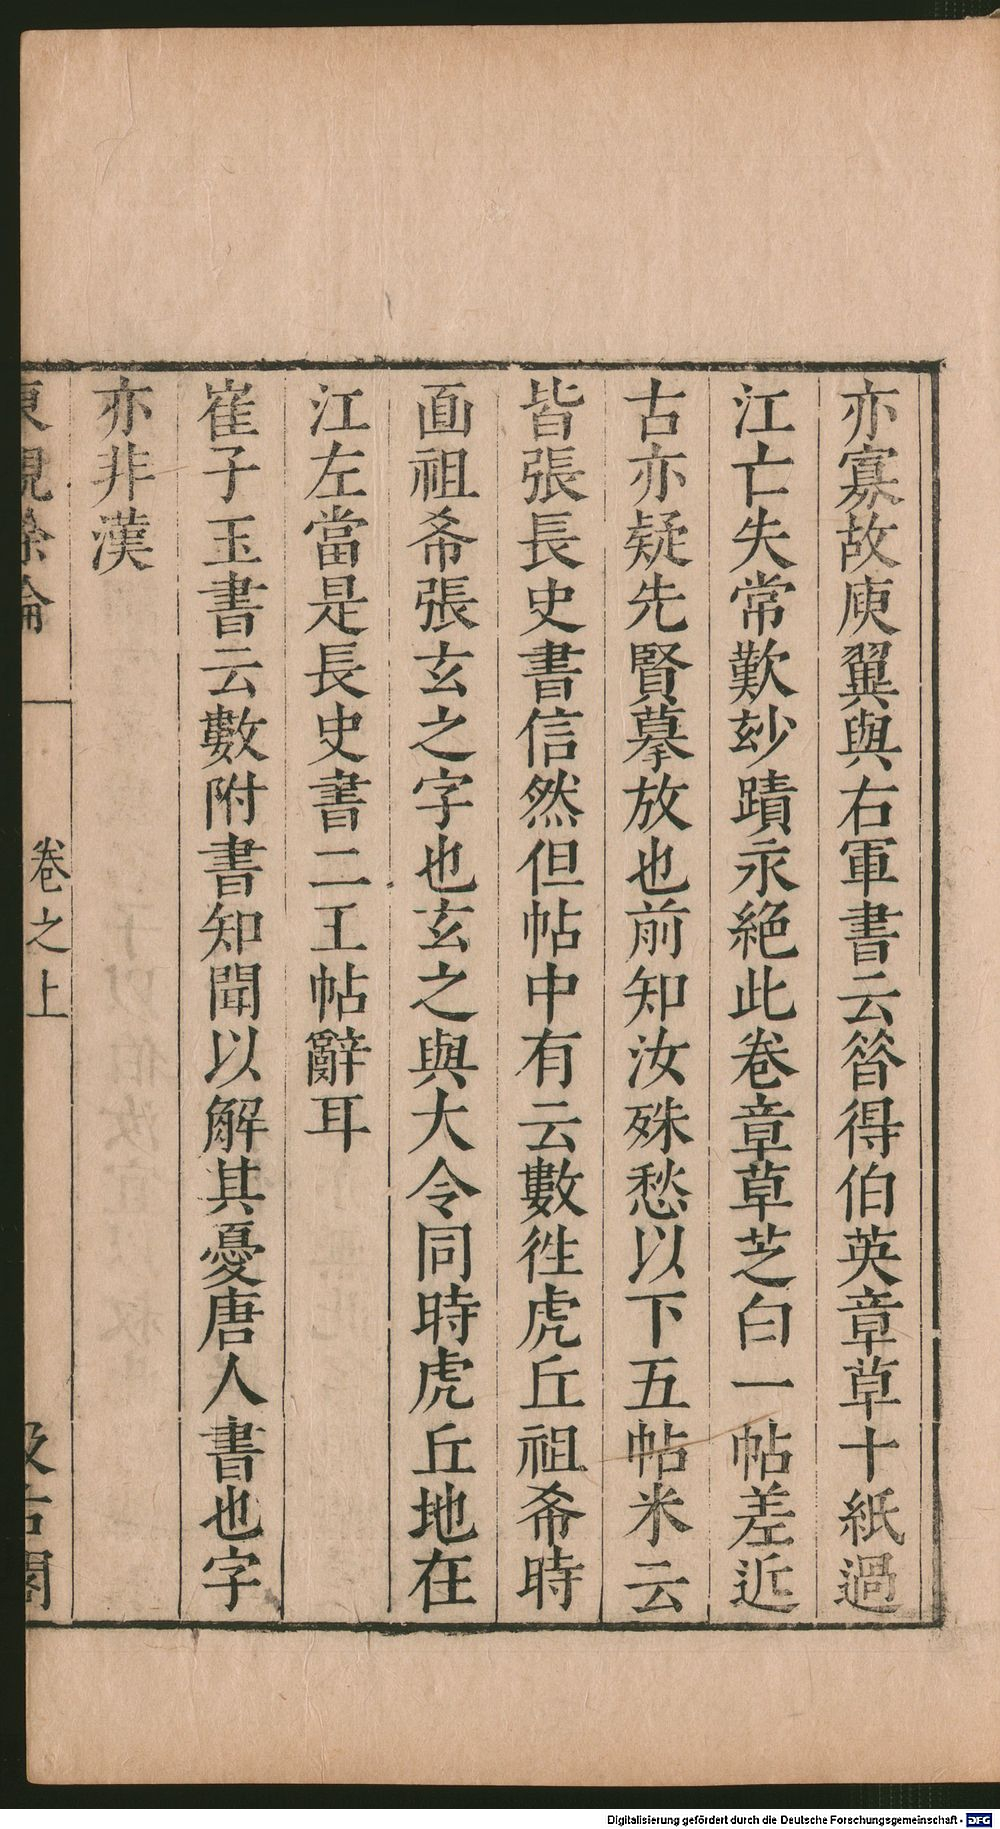 亦寡故庾翼與右軍書云昝得伯英章草十紙過
江亡失常歎玅蹟永絕此卷章草芝白一帖差近
古亦疑先賢摹放也前知汝殊愁以下五帖米云
皆張長史書信然但帖中有云數徃虎丘祖希時
面祖希張玄之字也玄之與大令同時虎丘地在
江左當是長史書二王帖辭耳
崔子玉書云數附書知聞以解其憂唐人書也字
亦非漢
東觀餘論 卷之上 汲古閣
Digitalisierung gefördert durch die Deutsche Forschungsgemeinschaft - DFG